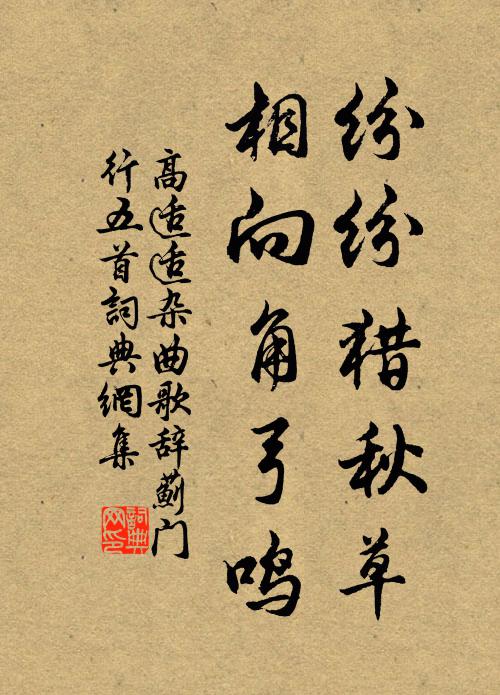 纷纷猎秋草
相向角弓鸣
高适适杂曲歌辞蓟门
行五首詞典網集
詞典
网印